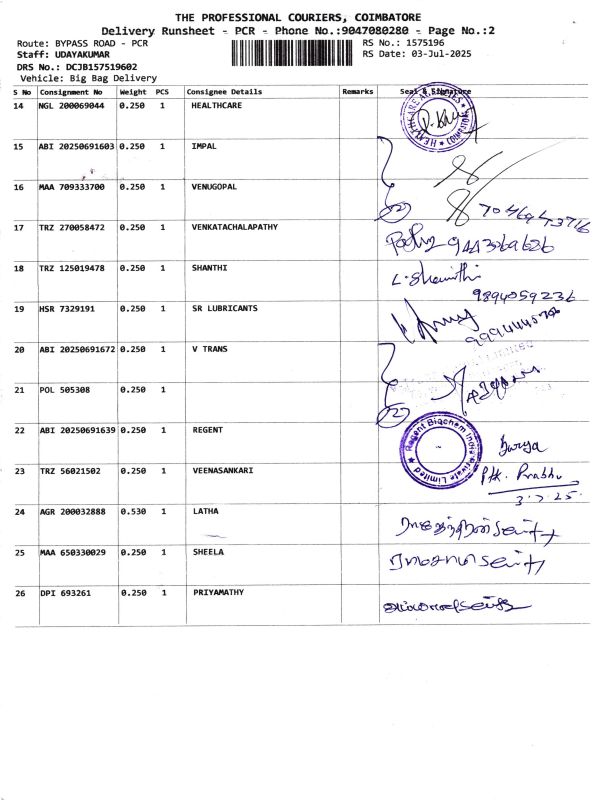 THE PROFESSIONAL COURIERS, COIMBATORE
Delivery Runsheet - PCR - Phone No.:9047080280 - Page No.:2
Route: BYPASS ROAD - PCR RS No.: 1575196
Staff: UDAYAKUMAR RS Date: 03-Jul-2025
DRS No.: DCJB157519602
Vehicle: Big Bag Delivery
S No Consignment No Weight PCS Consignee Details Remarks Seal & Signature
14 NGL 200069044 0.250 1 HEALTHCARE
15 ABI 20250691603 0.250 1 IMPAL
16 MAA 709333700 0.250 1 VENUGOPAL
(2) 7046943716
17 TRZ 270058472 0.250 1 VENKATACHALAPATHY
9443069626
18 TRZ 125019478 0.250 1 SHANTHI L. Shanthi
9894059236
19 HSR 7329191 0.250 1 SR LUBRICANTS
20 ABI 20250691672 0.250 1 V TRANS
21 POL 505308 0.250 1
(2)
22 ABI 20250691639 0.250 1 REGENT Regent Biochem India Private Limited
23 TRZ 56021502 0.250 1 VEENASANKARI Prabhu
3.7.25
24 AGR 200032888 0.530 1 LATHA
25 MAA 650330029 0.250 1 SHEELA
26 DPI 693261 0.250 1 PRIYAMATHY